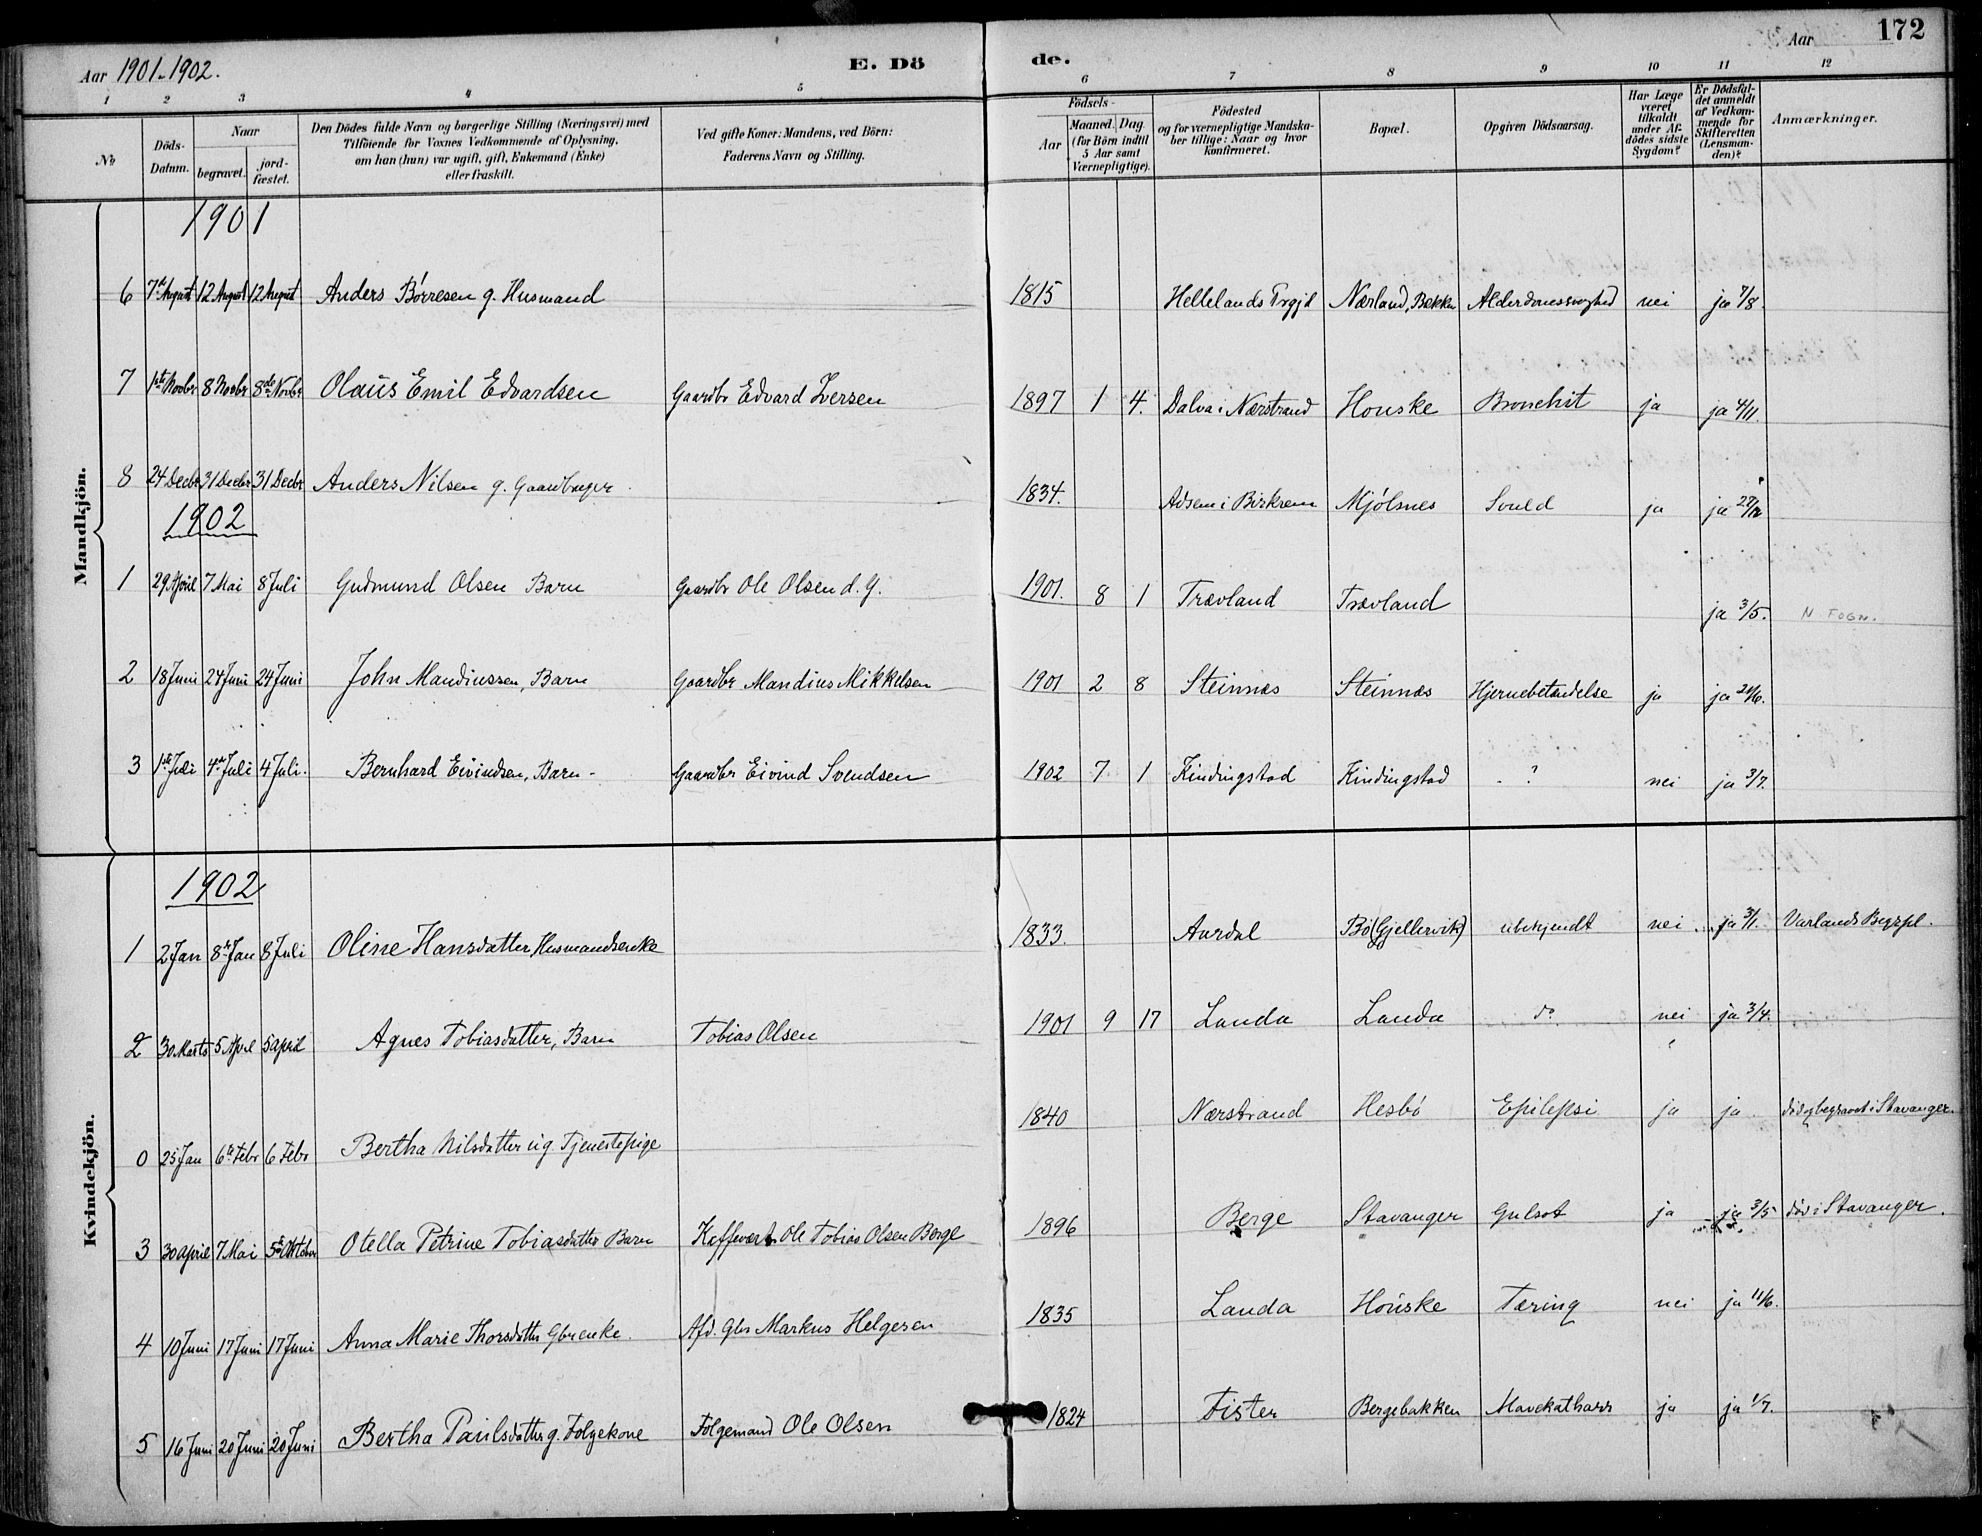 172
Aar 1901-1902. E. Dö de. Aar
1 2 3 4 5 6 7 8 9 10 11 12
No
Döds-Datum.
Naar
begravet.
jord-fæstet.
Den Dödes fulde Navn og borgerlige Stilling (Næringsvei) med
Tilföiende for Voxnes Vedkommende af Oplysning,
om han (hun) var ugift, gift, Enkemand (Enke)
eller fraskilt.
Ved gifte Koner: Mandens, ved Börn:
Faderens Navn og Stilling.
Födsels-
Aar
Maaned. Dag
(for Börn indtil
5 Aar samt
Værnepligtige).
Födested
og for værnepligtige Mandska-
ber tillige: Naar og hvor
konfirmeret.
Bopæl.
Opgiven Dödsaarsag.
Har Læge
været
tilkaldt
under Af-
dödes sidste
Sygdom?
Er Dödsfal-
det anmeldt
af Vedkom-
mende for
Skifteretten
(Lensman-
den)?
Anmærkninger.
Mandkjön.
1901
6 7de August 12 August 12 August Anders Börresen g. Husmand 1815 Hellelands Prgjd Nærland, Bekken Alderdomssvaghed nei ja 7/8.
7 1ste Novbr 8 Novbr 8de Novbr Olaus Emil Edvardsen Gaardbr Edvard Iversen 1897 1 4. Dalva i Nærstrand Houske Bronchit ja ja 4/11.
8 24 Decbr 31 Decbr 31 Decbr Anders Nilsen g. Gaardbruger 1834. Adsem i Birkrem Mjölsnes ja ja 27/12
1902
1 29 April 7 Mai 8 Juli Gudmund Olsen Barn Gaardbr Ole Olsen d. G. 1901. 8 1 Trævland Trævland ja 3/5. N FOGN.
2 18 Juni 24 Juni 24 Juni John Mandiussen, Barn Gaardbr Mandius Mikkelsen 1901 2 8 Steinnæs Steinnæs Hjernebetændelse ja ja 20/6.
3 1ste Juli 4de Juli 4 Juli. Bernhard Eivindsen, Barn - Gaardbr Eivind Svendsen 1902 7 1 Kindingstad Kindingstad ? nei ja 3/7.
Kvindekjön.
1902
1 2 Jan 8de Jan 8 Juli Oline Hansdatter, Husmandsenke 1833. Aardal Bö (Gjellervik) ubekjendt nei ja 3/1. Varlands Begrpl.
2 30 Marts 5 April 5 april Agnes Tobiasdatter, Barn Tobias Olsen 1901 9 17 Landa Landa do nei ja 3/4.
0 25 Jan 6te Febr 6 Febr Bertha Nilsdatter ug Tjenestepige 1840 Nærstrand Hesbö Epilepsi ja ja död og begravet i Stavanger.
3 30 april 7 Mai 5te Oktober Otella Petrine Tobiasdatter Barn Kaffevert Ole Tobias Olsen Berge 1896 Berge Stavanger Gulsot ja ja 3/5 död i Stavanger.
4 10 Juni 17 Juni 17 Juni Anna Marie Thorsdatter Gbrenke. Afd. Gbr Markus Helgesen 1835 Landa Houske Tæring nei ja 11/6.
5 16 Juni 20 Juni 20 Juni Bertha Paulsdatter g. Folgekone Folgemand Ole Olsen 1824 Fister Bergebakken Mavekatharr ja ja 1/7.